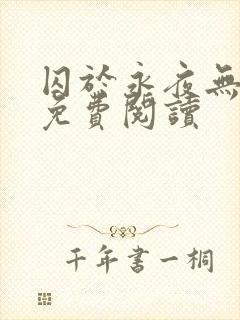 囚於永夜無
免費閱讀
千年書一桐